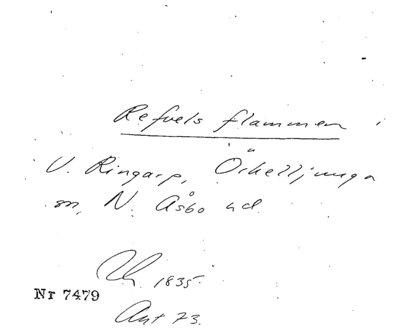 Refvels flammen
V. Ringarp, Örkelljunga
sn, N. Åsbo hd.
1835.
Nr 7479
Ant 73.